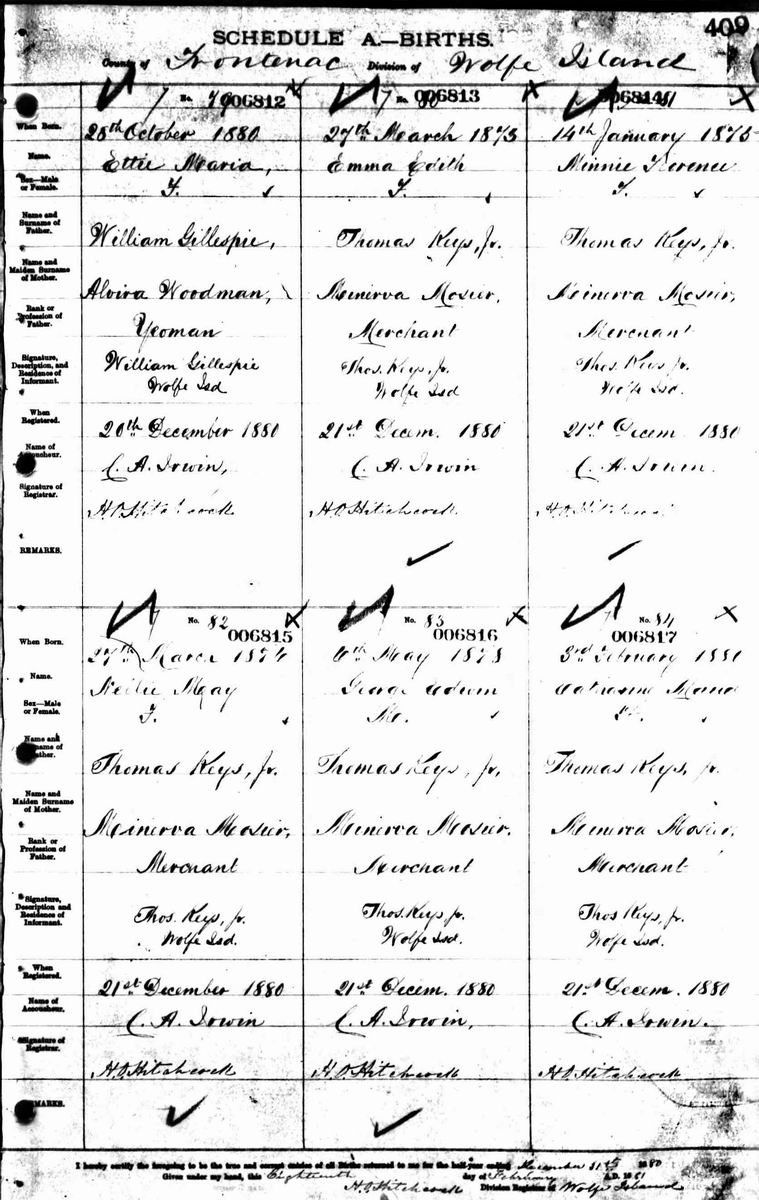 409
SCHEDULE A.—BIRTHS.
County of Frontenac Division of Wolfe Island
No. 79 006812
No. 80 006813
006814
When Born.
28th October 1880
27th March 1873
14th January 1875
Name.
Ettie Maria,
Emma Edith
Minnie Florence
Sex—Male or Female.
F.
F.
F.
Name and Surname of Father.
William Gillespie,
Thomas Keys, Jr.
Thomas Keys, Jr.
Name and Maiden Surname of Mother.
Alvira Woodman,
Minerva Mosier,
Minerva Mosier,
Rank or Profession of Father.
Yeoman
Merchant
Merchant
Signature, Description, and Residence of Informant.
William Gillespie
Wolfe Isd
Thos. Keys, Jr.
Wolfe Isd
Thos. Keys Jr.
Wolfe Isd.
When Registered.
20th December 1880
21st Decem. 1880
21st Decem 1880
Name of Accoucheur.
C. A. Irwin,
C. A. Irwin
C. A. Irwin.
Signature of Registrar.
H.O Hitchcock
H.O Hitchcock
H.O Hitchcock
REMARKS.
No. 82
006815
No. 83
006816
No. 84
006817
When Born.
27th March 1876
6th May 1878
3rd February 1880
Name.
Nellie May
George Edwin
Catharine
Sex—Male or Female.
F.
M.
Name and Surname of Father.
Thomas Keys, Jr.
Thomas Keys, Jr,
Thomas Keys, Jr.
Name and Maiden Surname of Mother.
Minerva Mosier,
Minerva Mosier.
Minerva Mosier,
Rank or Profession of Father.
Merchant
Merchant
Merchant
Signature, Description and Residence of Informant.
Thos. Keys, Jr.
Wolfe Isd.
Thos. Keys, Jr
Wolfe Isd.
Thos Keys, Jr.
Wolfe Isd.
When Registered.
21st December 1880
21st Decem. 1880
21st Decem. 1880
Name of Accoucheur.
C. A. Irwin
C. A. Irwin,
C. A. Irwin.
Signature of Registrar.
H.O Hitchcock
H.O Hitchcock
H.O Hitchcock
REMARKS.
I hereby certify the foregoing to be the true and correct entries of all Births returned to me for the half-year ending December 31st 1880
Given under my hand, this Eighteenth day of February A.D. 1881
H.O Hitchcock Division Registrar of Wolfe Island